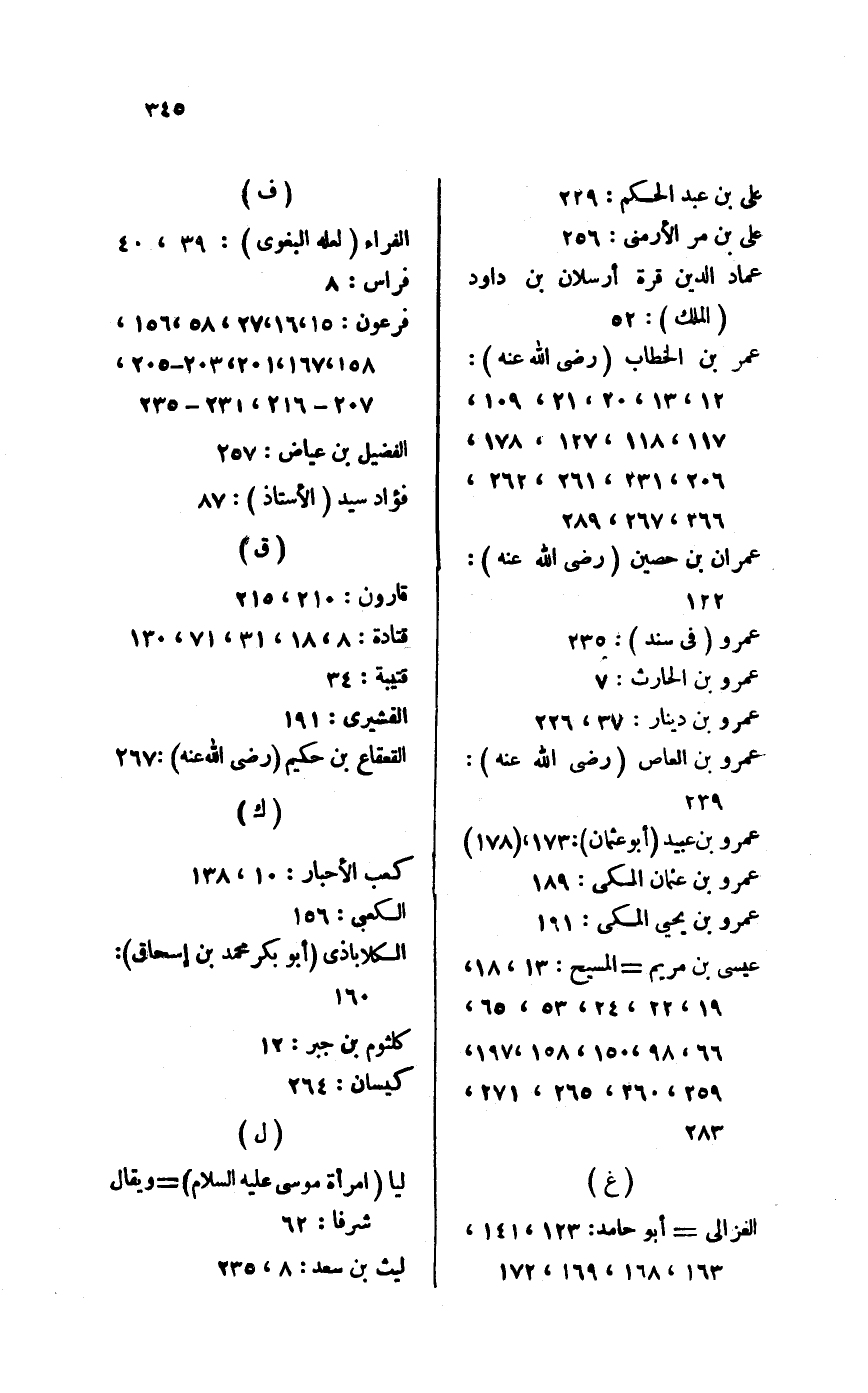 ٣٤٥
على بن عبد الحكم : ٢٢٩
على بن مر الأرمنى : ٢٥٦
عماد الدين قرة أرسلان بن داود
( الملك ) : ٥٢
عمر بن الخطاب ( رضى الله عنه ) :
١٢ ، ١٣ ، ٢٠ ، ٢١ ، ١٠٩ ،
١١٧ ، ١١٨ ، ١٢٧ ، ١٧٨ ،
٢٠٦ ، ٢٣١ ، ٢٦١ ، ٢٦٢ ،
٢٦٦ ، ٢٦٧ ، ٢٨٩
عمران بن حصين ( رضى الله عنه ) :
١٢٢
عمرو ( فى سند ) : ٢٣٥
عمرو بن الحارث : ٧
عمرو بن دينار : ٣٧ ، ٢٢٦
عمرو بن العاص ( رضى الله عنه ) :
٢٣٩
عمرو بن عبيد (أبو عثمان): ١٧٣، (١٧٨)
عمرو بن عثمان المكى : ١٨٩
عمرو بن يحيى المكى : ١٩١
عيسى بن مريم = المسيح : ١٣ ، ١٨،
١٩ ، ٢٢ ، ٢٤ ، ٥٣ ، ٦٥ ،
٦٦ ، ٩٨ ، ١٥٠، ١٥٨ ،١٩٧،
٢٥٩ ، ٢٦٠ ، ٢٦٥ ، ٢٧١ ،
٢٨٣
( غ )
الغزالى = أبو حامد: ١٢٣ ، ١٤١ ،
١٦٣ ، ١٦٨ ، ١٦٩ ، ١٧٢
( ف )
الفراء ( لعله البغوى ) : ٣٩ ، ٤٠
فراس : ٨
فرعون : ١٥،١٦،٢٧ ، ٥٨ ،١٥٦ ،
١٥٨،١٦٧،٢٠١،٢٠٣–٢٠٥ ،
٢٠٧ – ٢١٦ ، ٢٣١ – ٢٣٥
الفضيل بن عياض : ٢٥٧
فؤاد سيد ( الأستاذ ) : ٨٧
( ق )
قارون : ٢١٠ ، ٢١٥
قتادة : ٨ ، ١٨ ، ٣١ ، ٧١ ، ١٣٠
قتيبة : ٣٤
القشيرى : ١٩١
القعقاع بن حكيم (رضى الله عنه) :٢٦٧
( ك )
كعب الأحبار : ١٠ ، ١٣٨
الكعبى : ١٥٦
الكلاباذى (أبو بكر محمد بن إسحاق):
١٦٠
كلثوم بن جبر : ١٢
كيسان : ٢٦٤
( ل )
ليا ( امرأة موسى عليه السلام)=ويقال
شرفا : ٦٢
ليث بن سعد : ٨ ، ٢٣٥